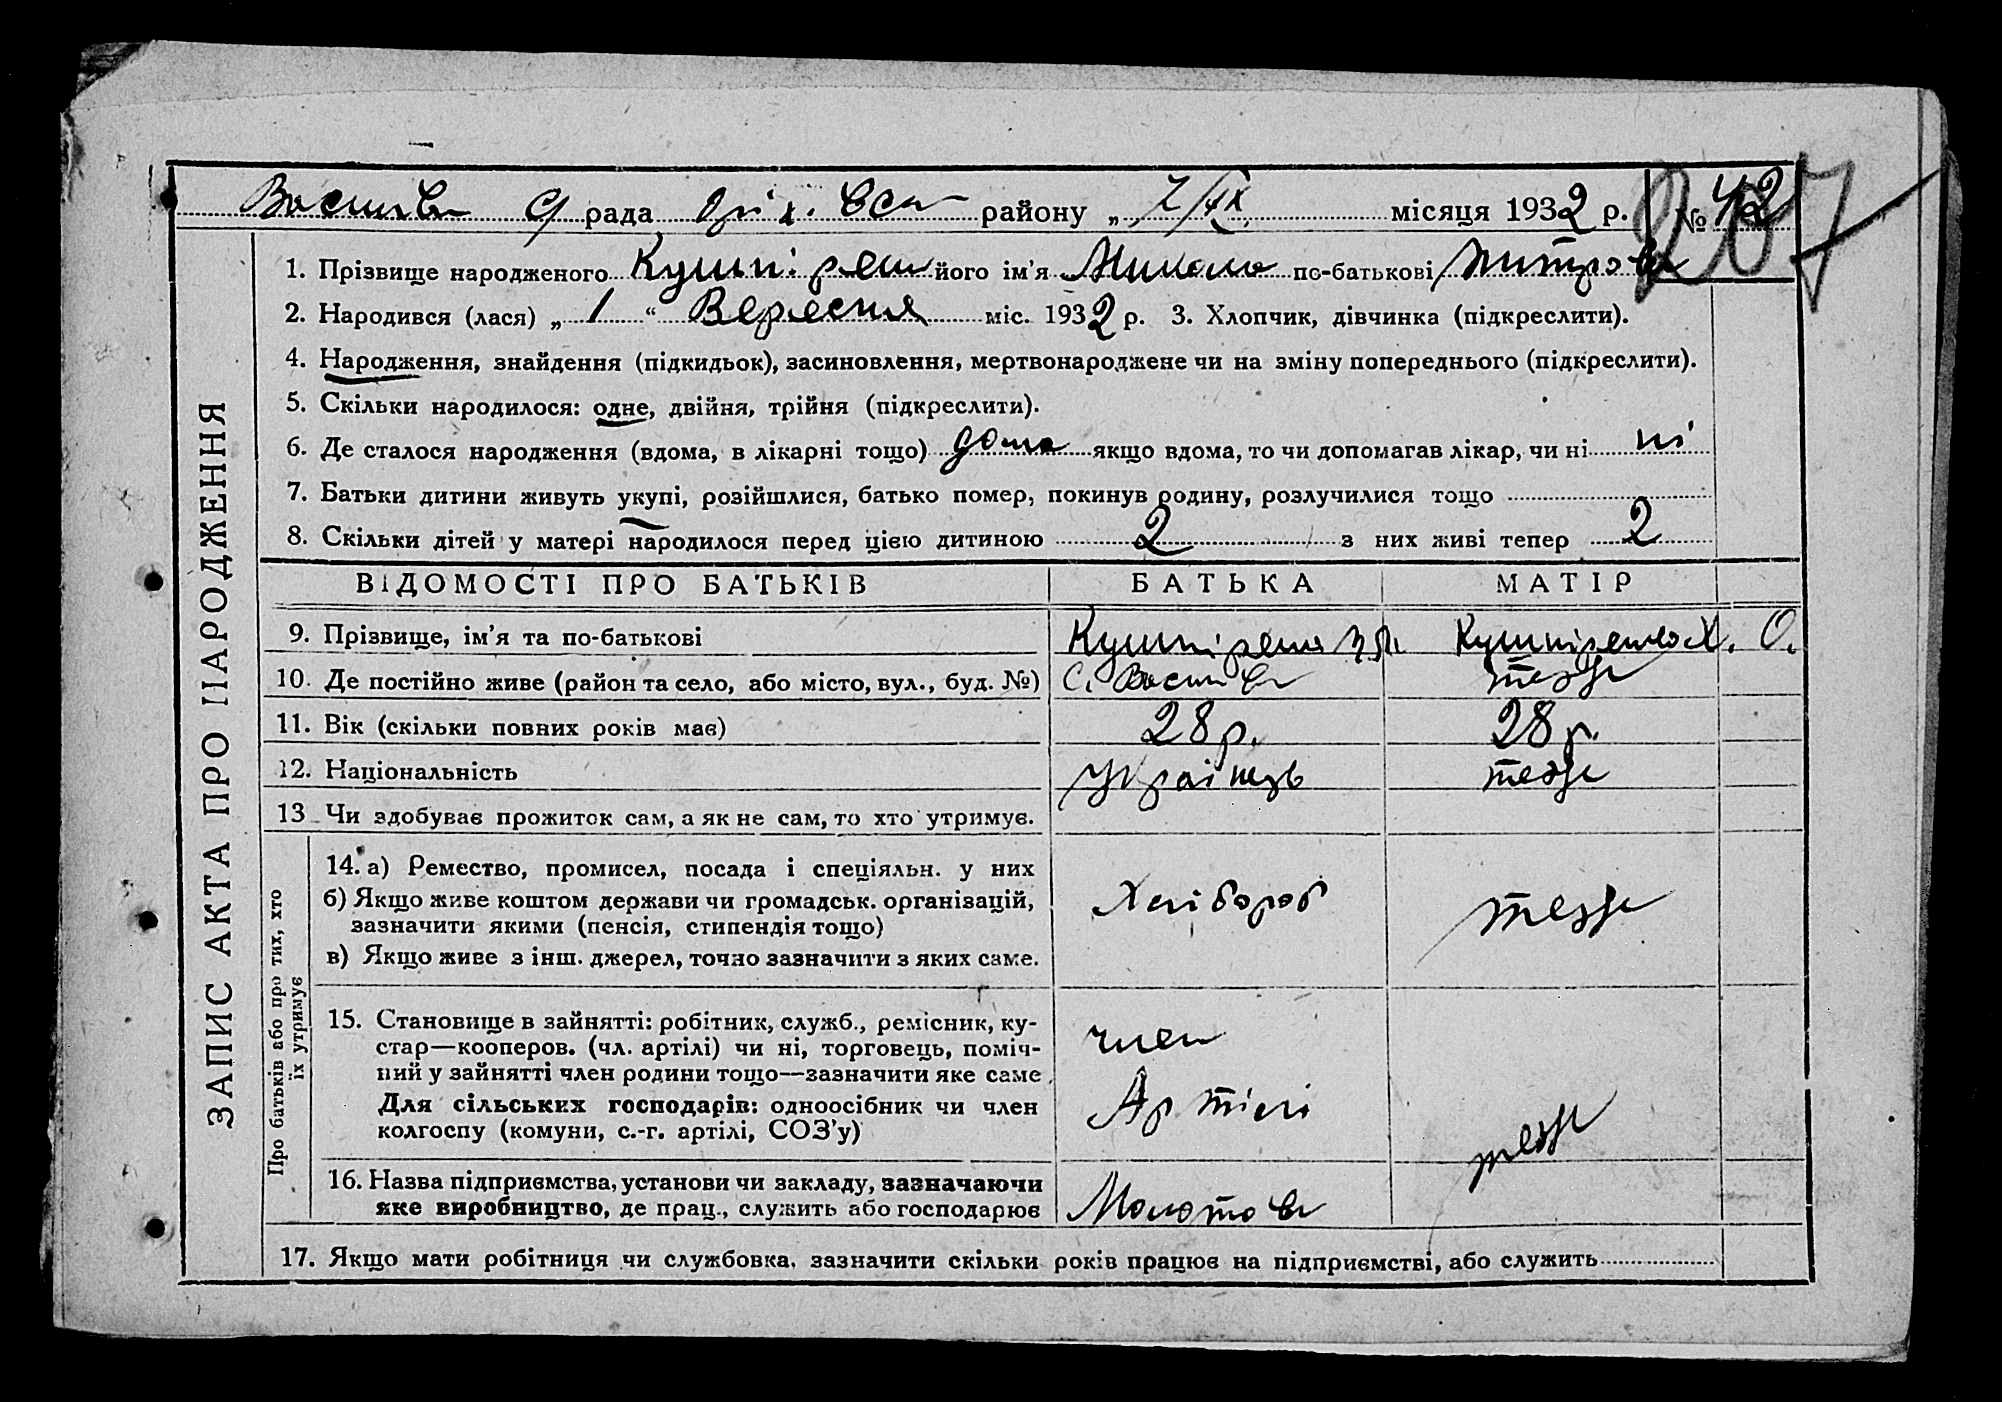 с рада Оріхівськ району „ 7/IX місяця 1932 р. № 42
207
ЗАПИС АКТА ПРО НАРОДЖЕННЯ
1. Прізвище народженого його ім’я Микола по-батькові
2. Народився (лася) „ 1 “ Вересня міс. 1932 р. 3. Хлопчик, дівчинка (підкреслити).
4. Народження, знайдення (підкидьок), засиновлення, мертвонароджене чи на зміну попереднього (підкреслити).
5. Скільки народилося: одне, двійня, трійня (підкреслити).
6. Де сталося народження (вдома, в лікарні тощо) дома якщо вдома, то чи допомагав лікар, чи ні ні
7. Батьки дитини живуть укупі, розійшлися, батько помер, покинув родину, розлучилися тощо
8. Скільки дітей у матері народилося перед цією дитиною 2 з них живі тепер 2
ВІДОМОСТІ ПРО БАТЬКІВ БАТЬКА МАТІР
9. Прізвище, ім’я та по-батькові Х. О.
10. Де постійно живе (район та село, або місто, вул., буд. №) С. теж
11. Вік (скільки повних років має) 28 р. 28 р.
12. Національність Українець теж
13 Чи здобуває прожиток сам, а як не сам, то хто утримує.
Про батьків або про тих, хто їх утримує
14. а) Ремество, промисел, посада і спеціяльн. у них
б) Якщо живе коштом держави чи громадськ. організацій, Хлібороб теж
зазначити якими (пенсія, стипендія тощо)
в) Якщо живе з інш. джерел, точно зазначити з яких саме.
15. Становище в зайнятті: робітник, служб., ремісник, ку- член
стар—кооперов. (чл. артілі) чи ні, торговець, поміч-
ний у зайнятті член родини тощо—зазначити яке саме
Для сільських господарів: одноосібник чи член Артілі теж
колгоспу (комуни, с.-г. артілі, СОЗ’у)
16. Назва підприємства, установи чи закладу, зазначаючи
яке виробництво, де прац., служить або господарює Молотов
17. Якщо мати робітниця чи службовка, зазначити скільки років працює на підприємстві, або служить